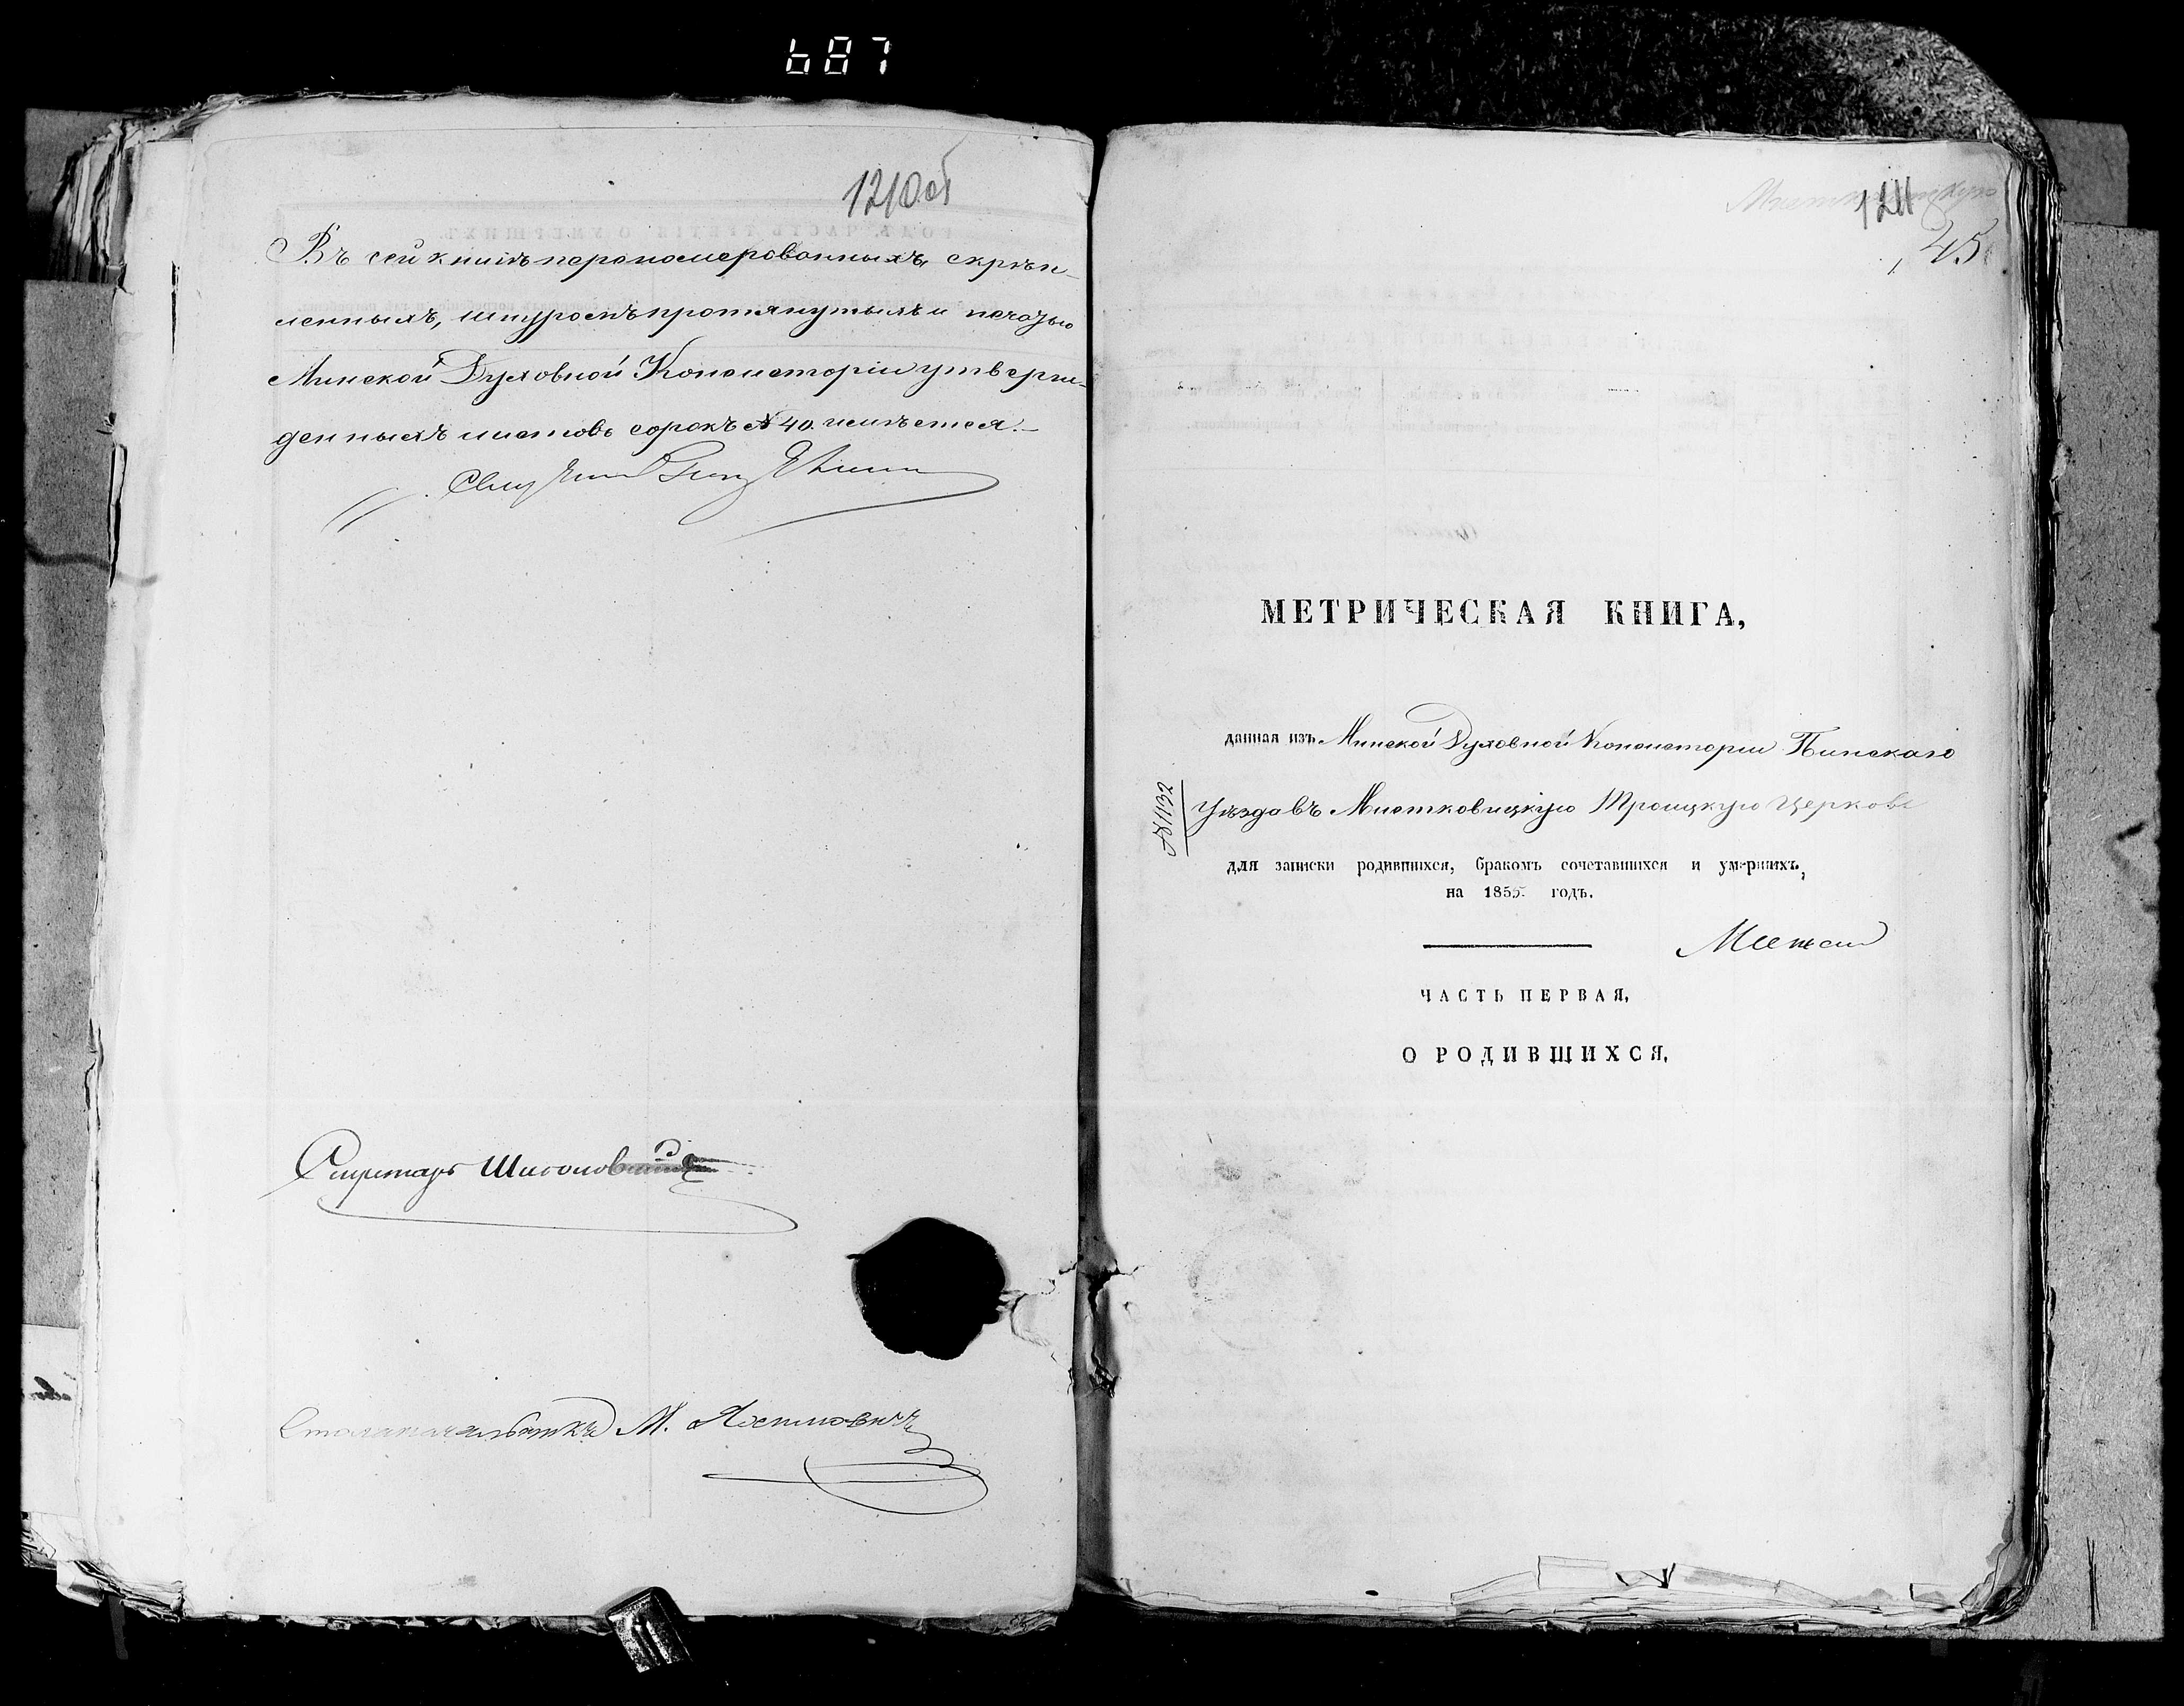 687
1210об
Въ сей книгѣ перономерованныхъ, скрѣп-
ленныхъ, шнуромъ протянутыхъ и печатью
Минской Духовной Консисторіи утверж-
денныхъ листовъ сорокъ № 40. имѣется.-
Секретарь
Столоначальникъ М.
1211
45
МЕТРИЧЕСКАЯ КНИГА,
данная изъ Минской Духовной Консисторіи Пинскаго
№ 1132
Уѣзда въ Мистковицкую Троицкую Церковь
для записки родившихся, бракомъ сочетавшихся и умершихъ,
на 1855 годъ.
ЧАСТЬ ПЕРВАЯ,
О РОДИВШИХСЯ,